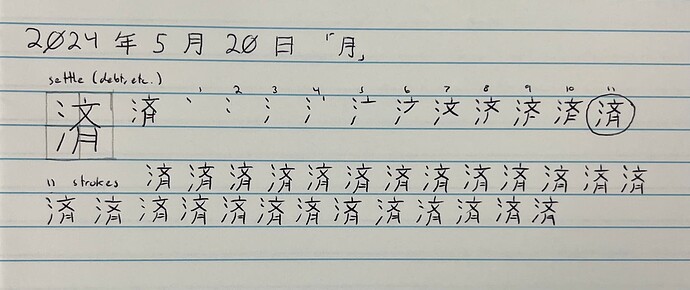 2024 年 5 月 20 日 「月」
settle (debt, etc.)
1 2 3 4 5 6 7 8 9 10 11
済 済 丶 冫 氵 汶 済
11 strokes 済 済 済 済 済 済 済 済 済 済 済 済 済
済 済 済 済 済 済 済 済 済 済 済 済 済